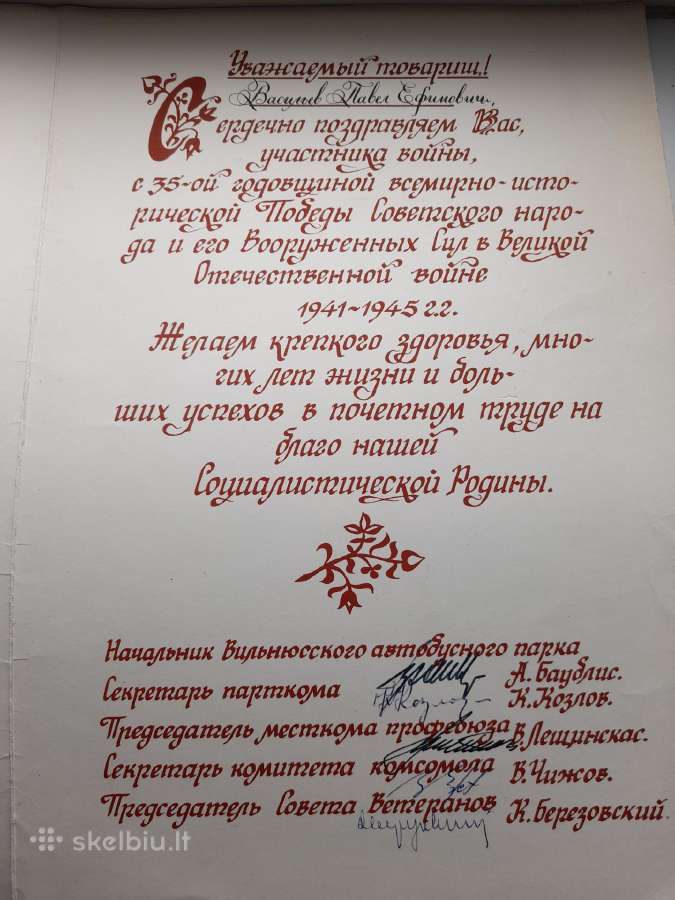 Уважаемый товарищ!
Васильев Павел Ефимович,
Сердечно поздравляем Вас,
участника войны,
с 35-ой годовщиной всемирно-исто-
рической Победы Советского наро-
да и его Вооруженных Сил в Великой
Отечественной войне
1941-1945 г.г.
Желаем крепкого здоровья, мно-
гих лет жизни и боль-
ших успехов в почетном труде на
благо нашей
Социалистической Родины.
Начальник Вильнюсского автобусного парка
А. Баублис.
Секретарь парткома К. Козлов.
Председатель месткома профсоюза В. Лещинскас.
Секретарь комитета комсомола В. Чижов.
Председатель Совета Ветеранов К. Березовский.
skelbiu.lt